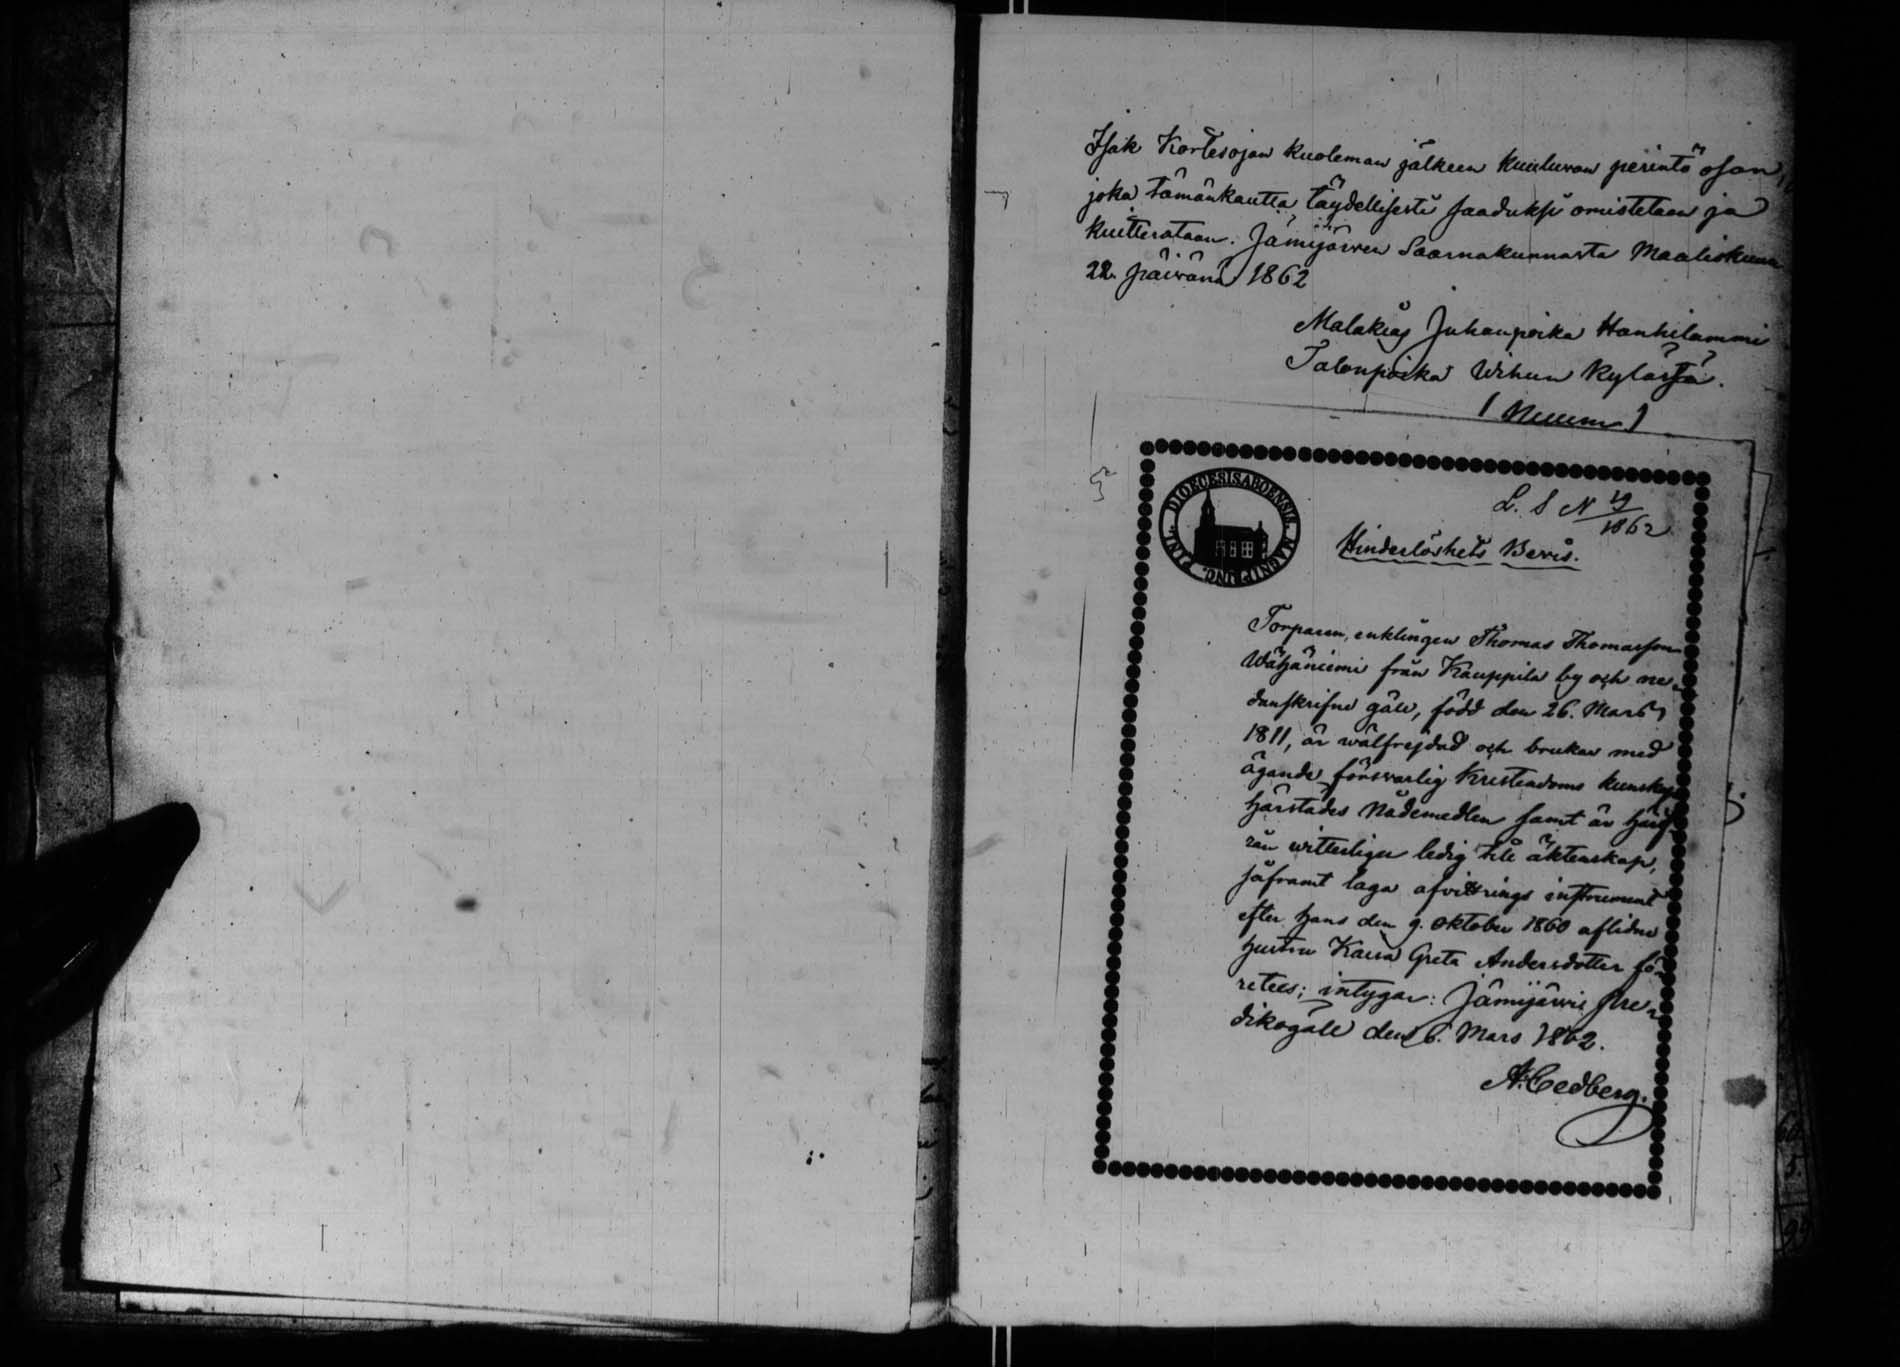 Isak Kortesojan kuoleman jälkeen kuuluvan perintö osan,
joka tämänkautta täydellisesti saaduksi omistetaan ja
kuitterataan. Jämijärwen Saarnakunnasta Maaliskuun
22. päivänä 1862
Malakias Juhanpoika Hanhilammi
Talonpoika Wihun Kylästä.
DIOECESIS ABOENSIS. MAGNI PRINC. FINL.
L. S N 4/1862
Hinderlöshets Bevis.
Torparen, enklingen Thomas Thomasson
Wähäniemi från Kauppila by och ne-
danskrifne gäll, född den 26. Mars
1811, är wälfrejdad och brukar med
ägande försvarlig Kristendoms kunskap
härstädes Nådemedlen samt är härifrån
witterligen ledig till äktenskap,
såframt laga afvittrings instrument
efter hans den 9. Oktober 1860 aflidne
hustru Kaisa Greta Andersdotter fö-
retees; intygar: Jämijärvi Pre-
dikogäll den 6. Mars 1862.
A. Cedberg.